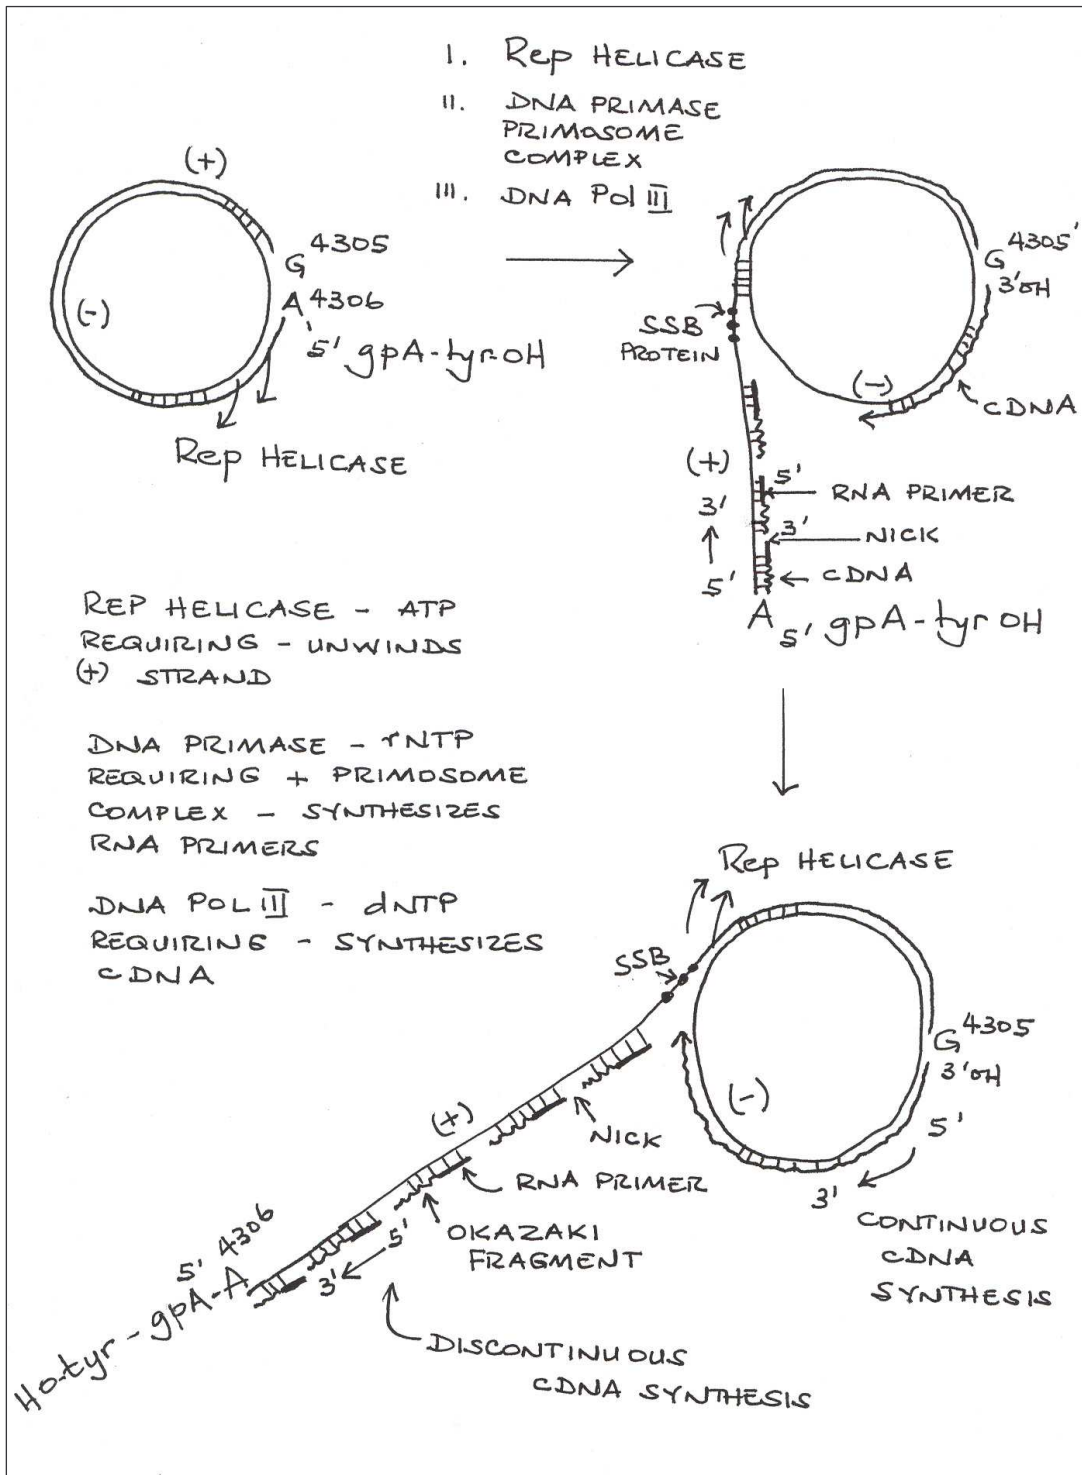 I. Rep HELICASE
II. DNA PRIMASE
PRIMOSOME
COMPLEX
III. DNA Pol III
(+)
G 4305
A 4306
5' gpA-tyr-OH
(-)
Rep HELICASE
G 4305'
3'OH
SSB
PROTEIN
(-)
cDNA
(+)
5'
RNA PRIMER
3'
3'
NICK
5'
cDNA
A 5' gpA-tyr OH
REP HELICASE - ATP
REQUIRING - UNWINDS
(+) STRAND
DNA PRIMASE - rNTP
REQUIRING + PRIMOSOME
COMPLEX - SYNTHESIZES
RNA PRIMERS
DNA POL III - dNTP
REQUIRING - SYNTHESIZES
cDNA
Rep HELICASE
SSB
G 4305
3'OH
(-)
5'
3'
CONTINUOUS
cDNA
SYNTHESIS
(+)
NICK
RNA PRIMER
OKAZAKI
FRAGMENT
5'
3'
5' 4306
HO-tyr-gpA-A
DISCONTINUOUS
cDNA SYNTHESIS